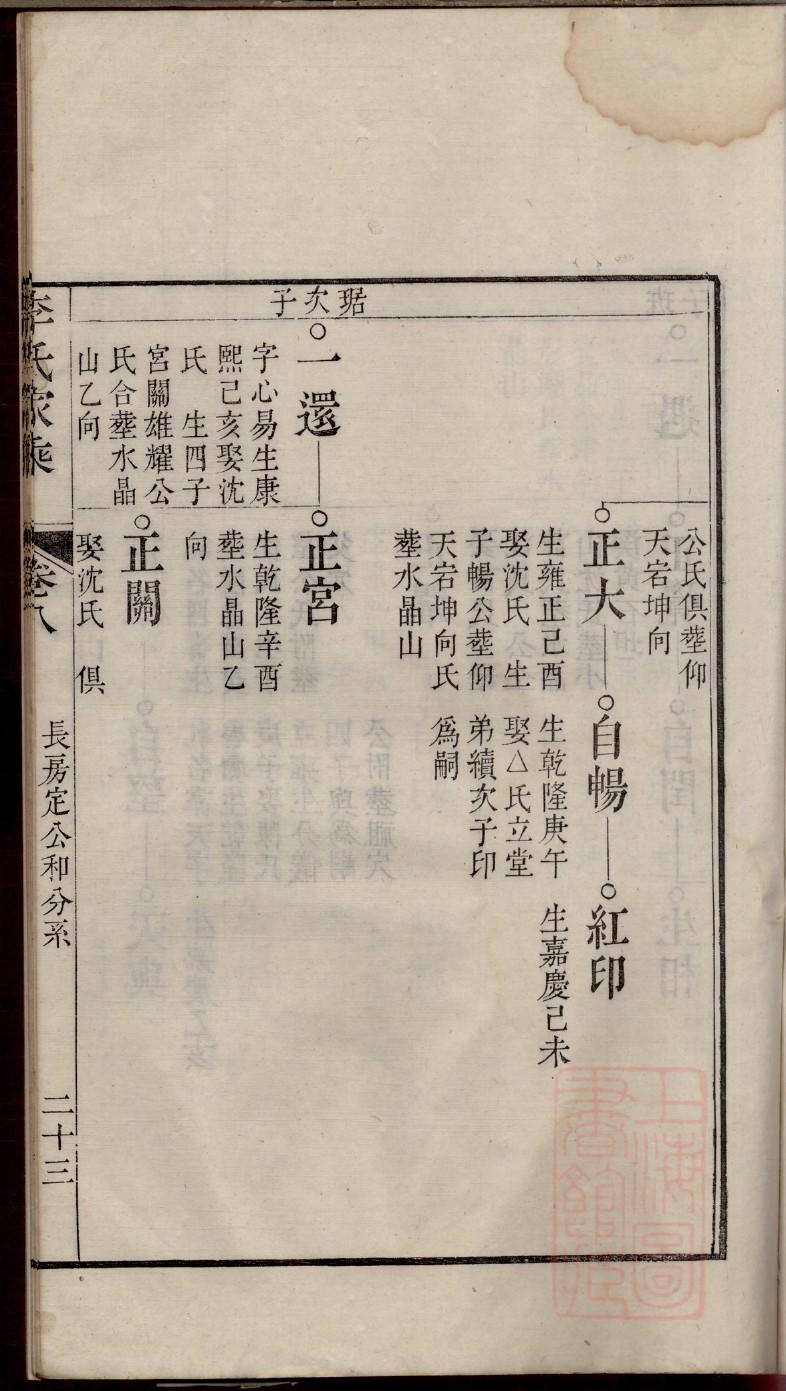 琚次子
公氏俱塟仰
天宕坤向
正大
生雍正己酉
娶沈氏 生
子暢公塟仰
天宕坤向氏
塟水晶山
自暢
生乾隆庚午
娶△氏立堂
弟續次子印
爲嗣
紅印
生嘉慶己未
一還
字心易生康
熙己亥娶沈
氏 生四子
宮關雄耀公
氏合塟水晶
山乙向
正宮
生乾隆辛酉
塟水晶山乙
向
正關
娶沈氏 俱
李氏家乘
卷八
長房定公和分系
二十三
上海圖
書館藏